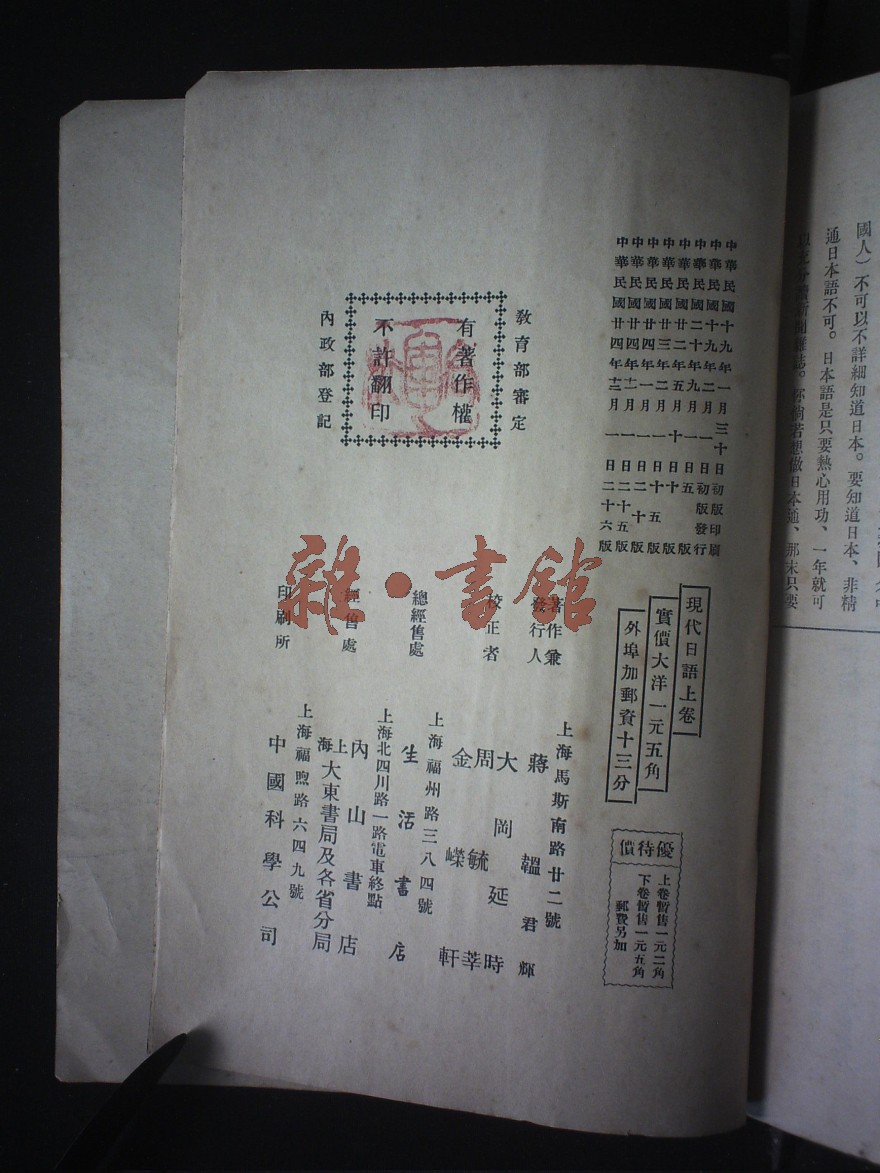 國人）不可以不詳細知道日本。要知道日本、非精
通日本語不可。日本語是只要熱心用功、一年就可
中華民國十九年一月三十日初版印刷
中華民國十九年二月一日初版發行
中華民國二十年九月五日五版
中華民國廿二年五月十日十版
中華民國廿三年二月一日十五版
中華民國廿四年一月一日二十版
中華民國廿四年十一月一日二十五版
中華民國廿四年十二月一日二十六版
現代日語上卷
實價大洋一元五角
外埠加郵資十三分
優待價
上卷暫售一元二角
下卷暫售一元五角
郵費另加
教育部審定
有著作權
不許翻印
內政部登記
著作兼
發行人
上海馬斯南路廿二號
蔣君輝
校正者
大岡延時
周毓莘
金嶸軒
總經售處
上海福州路三八四號
生活書店
經售處
上海北四川路一路電車終點
內山書店
上海大東書局及各省分局
印刷所
上海福煦路六四九號
中國科學公司
雜·書館